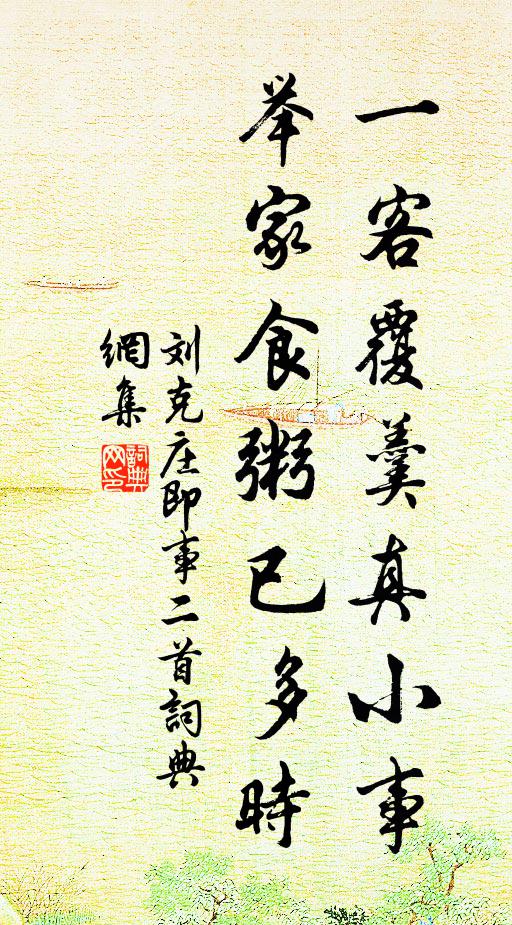 一客覆羹真小事
举家食粥已多時
刘克庄即事二首詞典
網集
詞典
网印